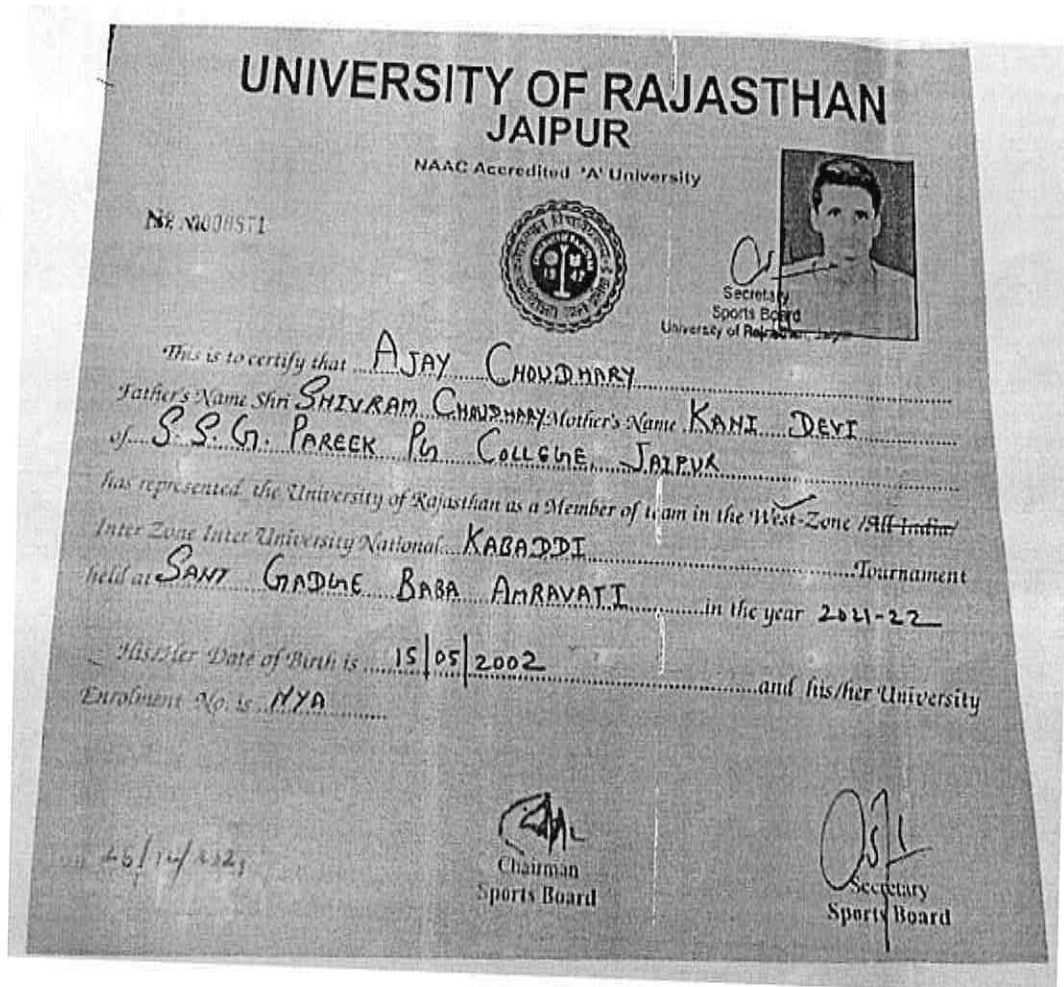 UNIVERSITY OF RAJASTHAN
JAIPUR
NAAC Accredited 'A' University
Secretary
Sports Board
University of Rajasthan, Jaipur
This is to certify that AJAY CHOUDHARY
Father's Name Shri SHIVRAM CHAUDHARY Mother's Name KANI DEVI
of S.S.G. PAREEK PG COLLEGE, JAIPUR
has represented the University of Rajasthan as a Member of team in the West-Zone /All India/
Inter Zone Inter University National KABADDI Tournament
held at SANT GADGE BABA AMRAVATI in the year 2021-22
His/Her Date of Birth is 15/05/2002 and his/her University
Enrolment No. is NYA
Chairman
Sports Board
Secretary
Sports Board